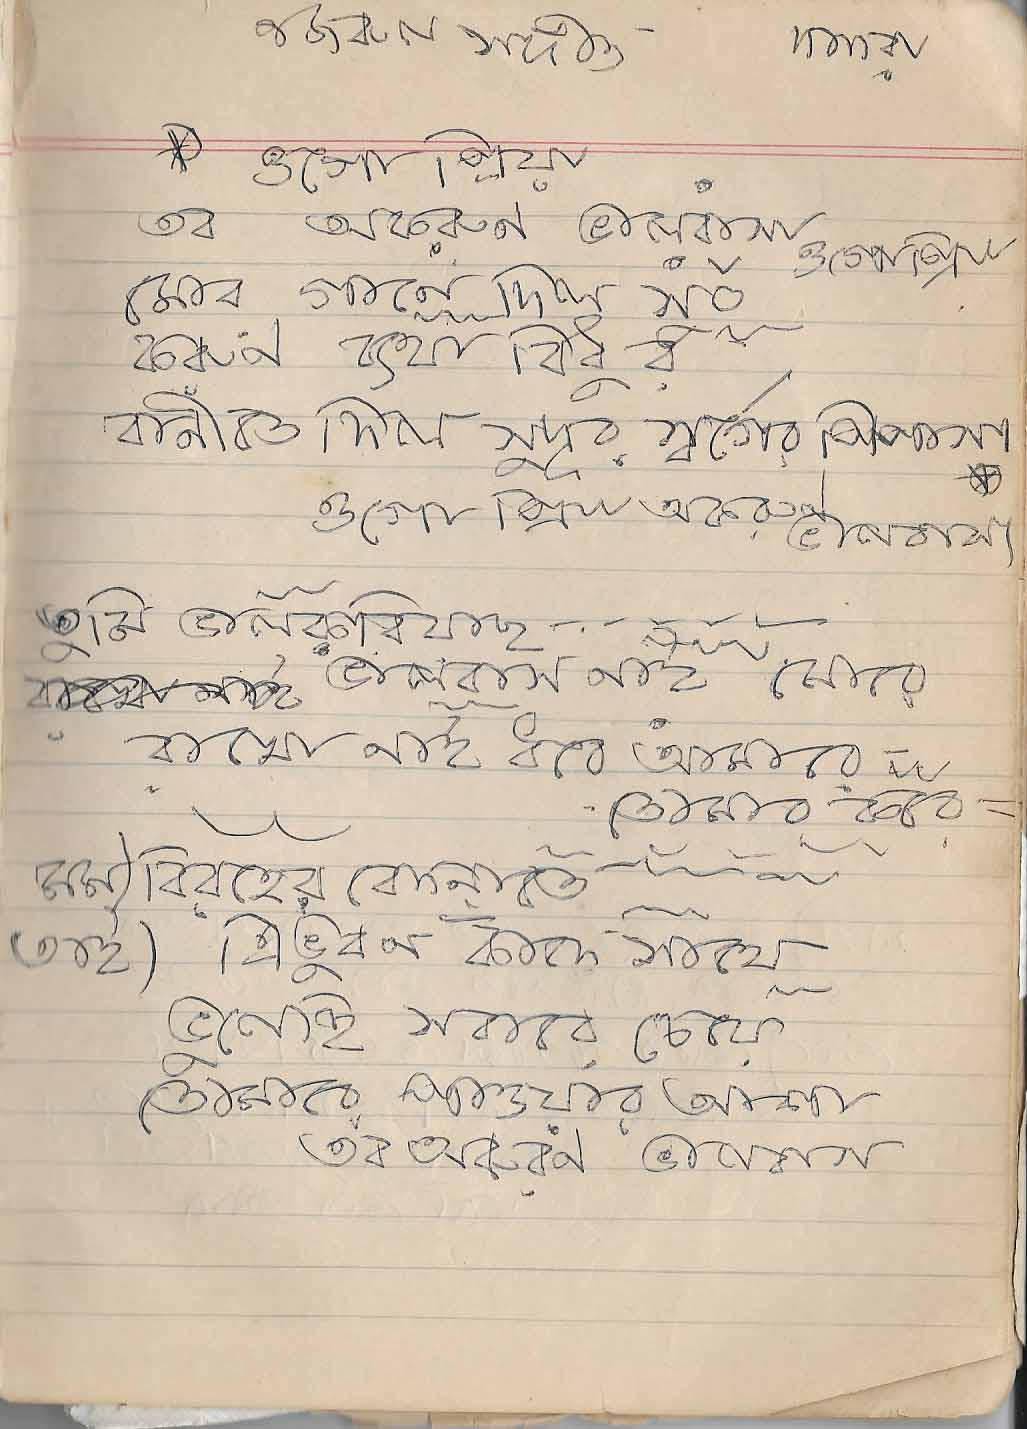 নজরুল সঙ্গীত - দাদরা
* ওগো প্রিয়
তব অকরুণ ভালবাসা
ওগো প্রিয়
মোর গানে দিল সুর
করুণ ব্যথা বিধুর
বানীরে দিল সুদূর স্বর্গের পিপাসা
ওগো প্রিয় অকরুণ
ভালবাসা
তুমি ভাল করিয়াছ
ভালবাস নাই মোরে
রাখো নাই ধরে আমারে
তোমার করে
মম) বিরহের বেদনাতে
তাই) ত্রিভুবন কাঁদে সাথে
ভুলেছি সবারে চেয়ে
তোমারে পাওয়ার আশা
তব অকরুণ ভালবাসা